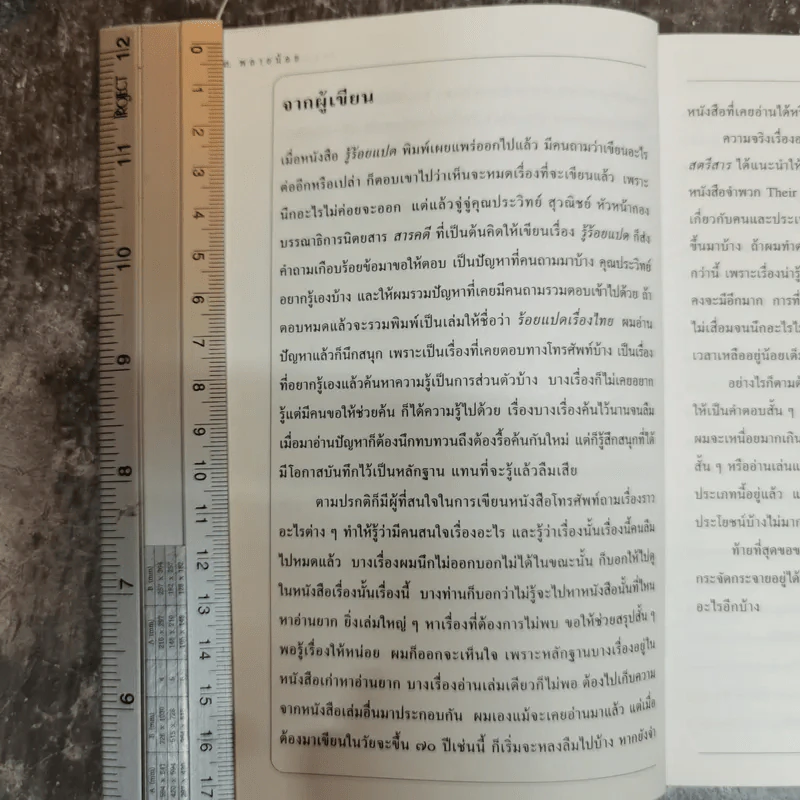 ส. พลายน้อย
จากผู้เขียน
เมื่อหนังสือ รู้ร้อยแปด พิมพ์เผยแพร่ออกไปแล้ว มีคนถามว่าเขียนอะไร
ต่ออีกหรือเปล่า ก็ตอบเขาไปว่าเห็นจะหมดเรื่องที่จะเขียนแล้ว เพราะ
นึกอะไรไม่ค่อยจะออก แต่แล้วจู่จู่คุณประวิทย์ สุวณิชย์ หัวหน้ากอง
บรรณาธิการนิตยสาร สารคดี ที่เป็นต้นคิดให้เขียนเรื่อง รู้ร้อยแปด ก็ส่ง
คำถามเกือบร้อยข้อมาขอให้ตอบ เป็นปัญหาที่คนถามมาบ้าง คุณประวิทย์
อยากรู้เองบ้าง และให้ผมรวมปัญหาที่เคยมีคนถามรวมตอบเข้าไปด้วย ถ้า
ตอบหมดแล้วจะรวมพิมพ์เป็นเล่มให้ชื่อว่า ร้อยแปดเรื่องไทย ผมอ่าน
ปัญหาแล้วก็นึกสนุก เพราะเป็นเรื่องที่เคยตอบทางโทรศัพท์บ้าง เป็นเรื่อง
ที่อยากรู้เองแล้วค้นหาความรู้เป็นการส่วนตัวบ้าง บางเรื่องก็ไม่เคยอยาก
รู้แต่มีคนขอให้ช่วยค้น ก็ได้ความรู้ไปด้วย เรื่องบางเรื่องค้นไว้นานจนลืม
เมื่อมาอ่านปัญหาก็ต้องนึกทบทวนถึงต้องรื้อค้นกันใหม่ แต่ก็รู้สึกสนุกที่ได้
มีโอกาสบันทึกไว้เป็นหลักฐาน แทนที่จะรู้แล้วลืมเสีย
ตามปรกติก็มีผู้ที่สนใจในการเขียนหนังสือโทรศัพท์ถามเรื่องราว
อะไรต่าง ๆ ทำให้รู้ว่ามีคนสนใจเรื่องอะไร และรู้ว่าเรื่องนั้นเรื่องนี้คนลืม
ไปหมดแล้ว บางเรื่องผมนึกไม่ออกบอกไม่ได้ในขณะนั้น ก็บอกให้ไปดู
ในหนังสือเรื่องนั้นเรื่องนี้ บางท่านก็บอกว่าไม่รู้จะไปหาหนังสือนั้นที่ไหน
หาอ่านยาก ยิ่งเล่มใหญ่ ๆ หาเรื่องที่ต้องการไม่พบ ขอให้ช่วยสรุปสั้น ๆ
พอรู้เรื่องให้หน่อย ผมก็ออกจะเห็นใจ เพราะหลักฐานบางเรื่องอยู่ใน
หนังสือเก่าหาอ่านยาก บางเรื่องอ่านเล่มเดียวก็ไม่พอ ต้องไปเก็บความ
จากหนังสือเล่มอื่นมาประกอบกัน ผมเองแม้จะเคยอ่านมาแล้ว แต่เมื่อ
ต้องมาเขียนในวัยจะขึ้น ๗๐ ปีเช่นนี้ ก็เริ่มจะหลงลืมไปบ้าง หากยังจำ
หนังสือที่เคยอ่านได้
ความจริงเรื่อง
สตรีสาร ได้แนะนำให้
หนังสือจำพวก Their
เกี่ยวกับคนและประเ
ขึ้นมาบ้าง ถ้าผมทำ
กว่านี้ เพราะเรื่องน่ารู้
คงจะมีอีกมาก การที่
ไม่เสื่อมจนนึกอะไรไ
เวลาเหลืออยู่น้อยเต็
อย่างไรก็ตาม
ให้เป็นคำตอบสั้น ๆ
ผมจะเหนื่อยมากเกิน
สั้น ๆ หรืออ่านเล่น
ประเภทนี้อยู่แล้ว แ
ประโยชน์บ้างไม่มาก
ท้ายที่สุดขอ
กระจัดกระจายอยู่ได้
อะไรอีกบ้าง
PROJECT
12
11
10
9
8
7
6
0
1
2
3
4
5
6
7
8
9
10
11
12
13
14
15
16
17
A (mm)
B (mm)